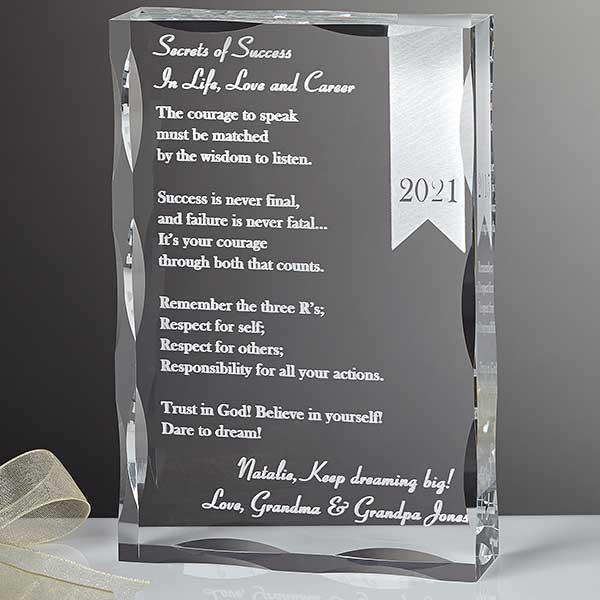 Secrets of Success
In Life, Love and Career
The courage to speak
must be matched
by the wisdom to listen.
Success is never final,
and failure is never fatal...
It's your courage
through both that counts.
Remember the three R's;
Respect for self;
Respect for others;
Responsibility for all your actions.
Trust in God! Believe in yourself!
Dare to dream!
Natalie, Keep dreaming big!
Love, Grandma & Grandpa Jones
2021